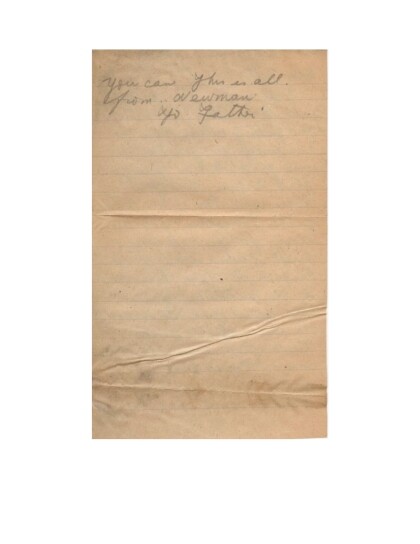 you can This is all.
from.. Newman
to Father